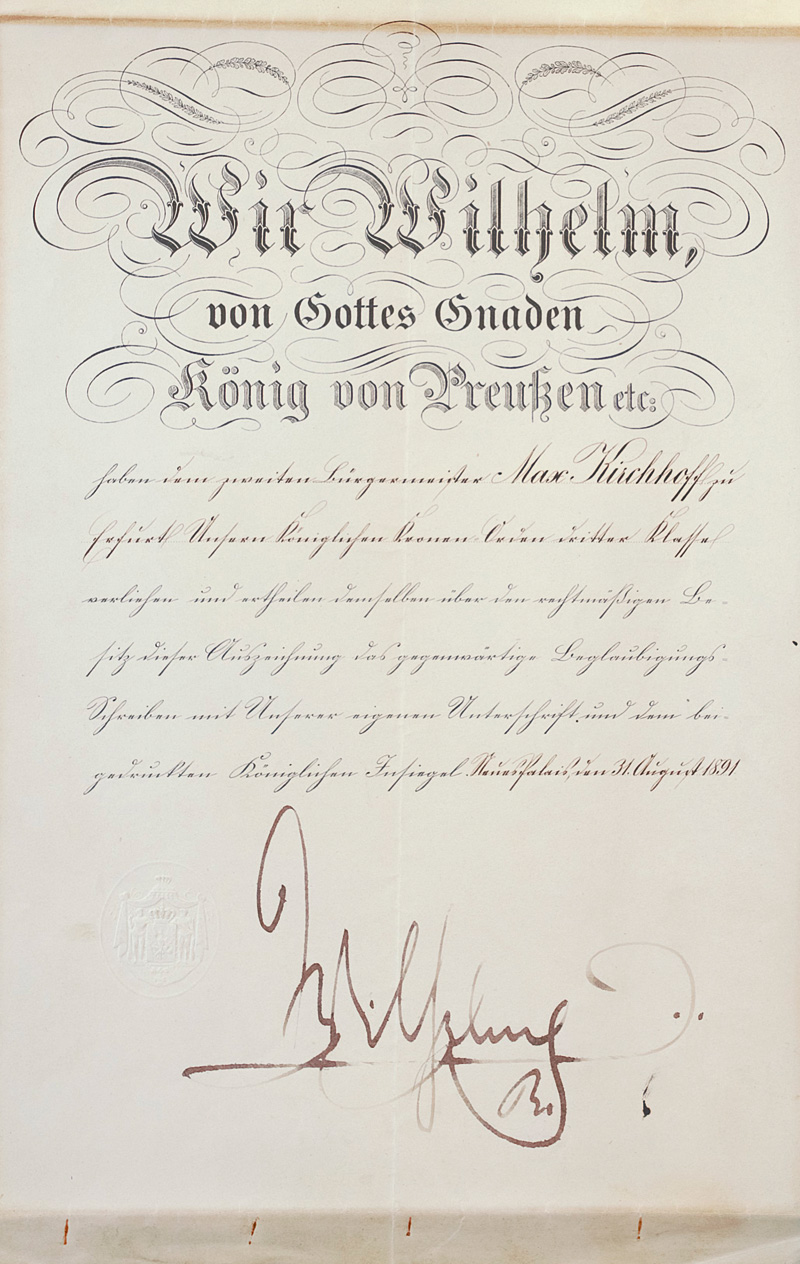 Wir Wilhelm,
von Gottes Gnaden
König von Preußen etc:
haben dem zweiten Bürgermeister Max Kirchhoff zu
Erfurt Unsern Königlichen Kronen-Orden dritter Klasse
verliehen und ertheilen demselben über den rechtmäßigen Be-
sitz dieser Auszeichnung das gegenwärtige Beglaubigungs-
Schreiben mit Unserer eigenen Unterschrift und dem bei-
gedruckten Königlichen Insiegel. Neues Palais, den 31. August 1891
Wilhelm
R.